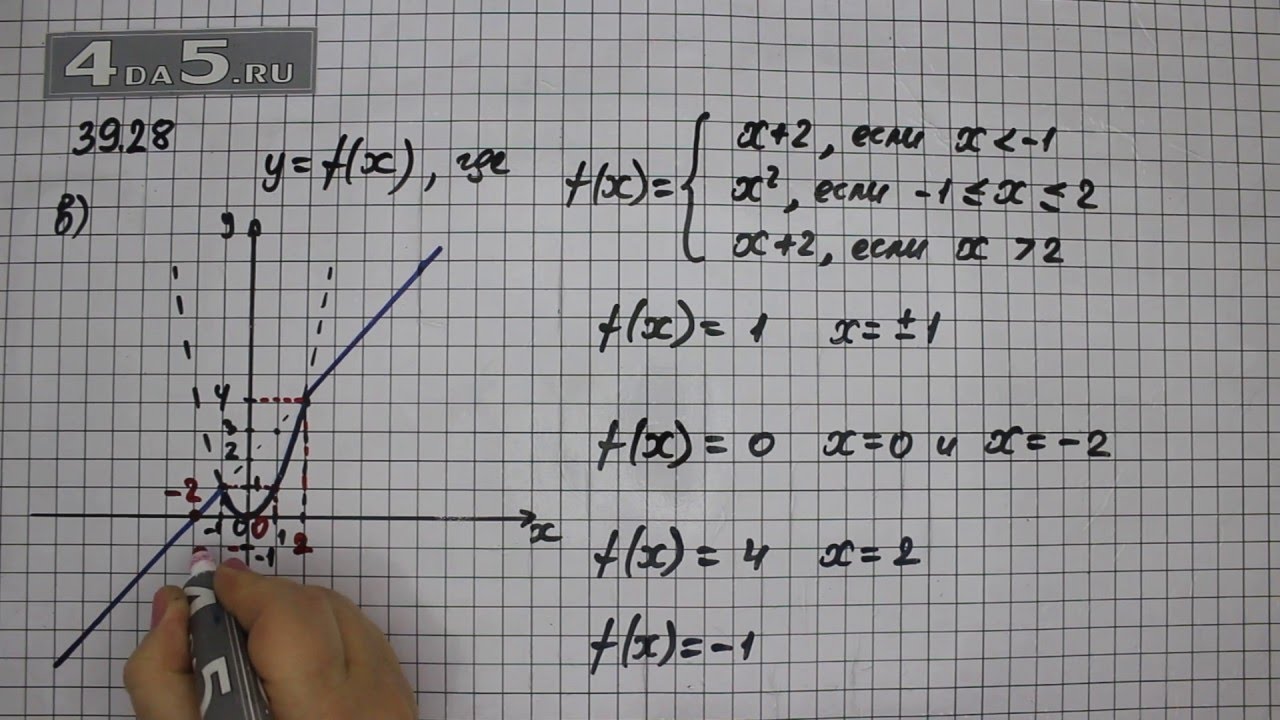 4DA5.RU
39.28
y = f(x), где
f(x) = { x+2, если x < -1
x², если -1 ≤ x ≤ 2
x+2, если x > 2
в)
y
4
3
2
1
-2
-1
0
0
1
2
x
-1
f(x) = 1 x = ±1
f(x) = 0 x = 0 и x = -2
f(x) = 4 x = 2
f(x) = -1